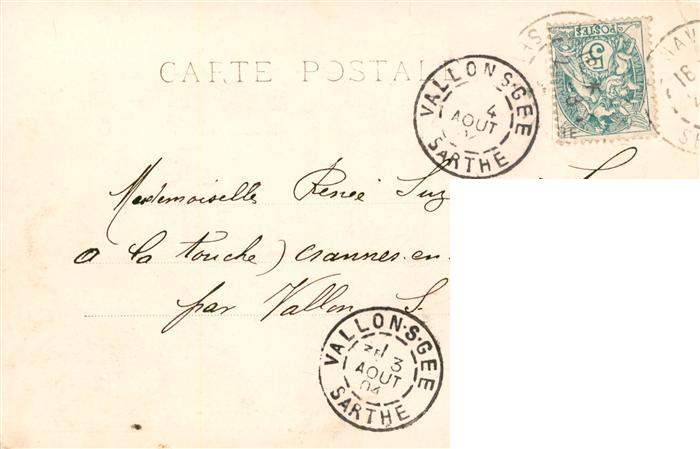 CARTE POSTALE
POSTES
5
VALLON S·GEE
4
AOUT
04
SARTHE
HAV
18
Mesdemoiselles Renée Suz
à la Touche) Crannes-en-
par Vallon S.
VALLON·S·GEE
3
AOUT
04
SARTHE